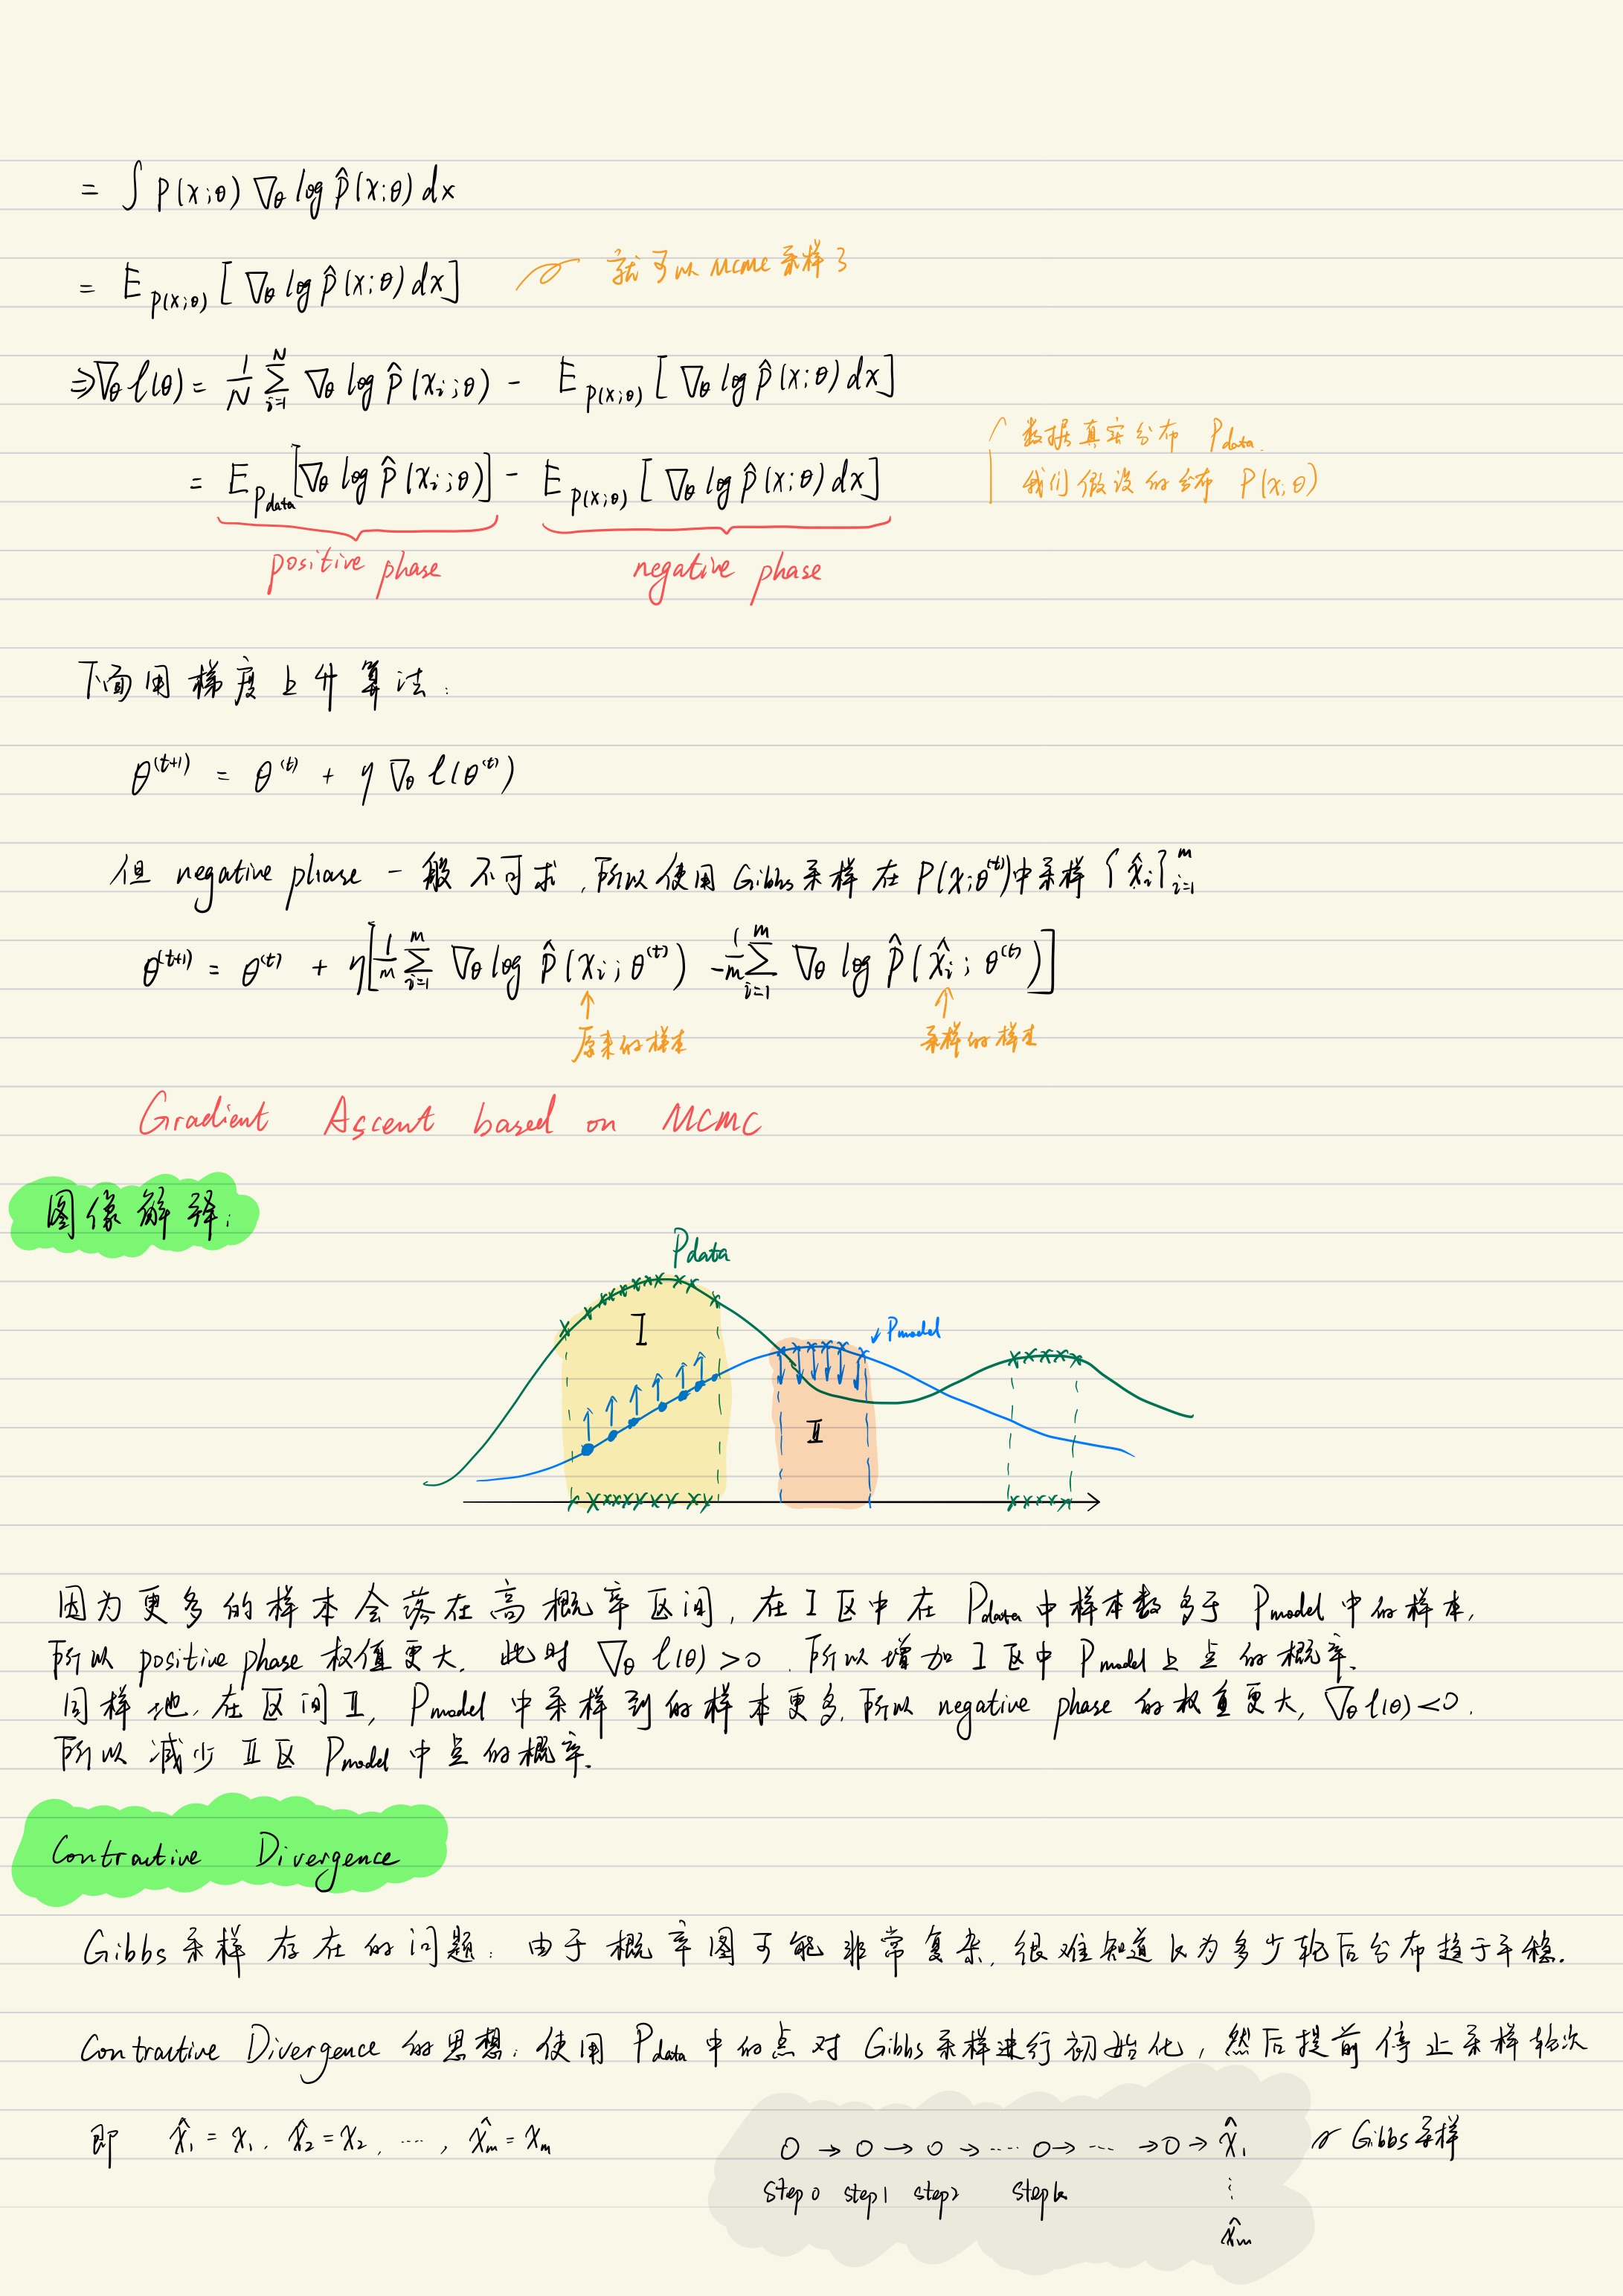 = ∫ P(x;θ) ∇θ log P̂(x;θ) dx
= E_P(x;θ) [ ∇θ log P̂(x;θ) dx ] 就可以MCMC采样了
⇒ ∇θ l(θ) = 1/N ∑_{i=1}^{N} ∇θ log P̂(xi;θ) - E_P(x;θ) [ ∇θ log P̂(x;θ) dx ]
数据真实分布 Pdata.
= E_Pdata [∇θ log P̂(xi;θ)] - E_P(x;θ) [ ∇θ log P̂(x;θ) dx ] 我们假设的分布 P(x;θ)
positive phase negative phase
下面用梯度上升算法:
θ^(t+1) = θ^(t) + η ∇θ l(θ^(t))
但 negative phase 一般不可求,所以使用Gibbs采样在P(x;θ^(t))中采样 {x̂i}_{i=1}^{m}
θ^(t+1) = θ^(t) + η[ 1/m ∑_{i=1}^{m} ∇θ log P̂(xi;θ^(t)) - 1/m ∑_{i=1}^{m} ∇θ log P̂(x̂i;θ^(t)) ]
↑ ↑
原来的样本 采样的样本
Gradient Ascent based on MCMC
图像解释:
Pdata
I
Pmodel
II
因为更多的样本会落在高概率区间,在I区中在 Pdata 中样本数多于 Pmodel 中的样本,
所以 positive phase 权值更大. 此时 ∇θ l(θ) > 0. 所以增加 I 区中 Pmodel 上点的概率.
同样地,在区间II, Pmodel 中采样到的样本更多,所以 negative phase 的权重更大, ∇θ l(θ) < 0.
所以减少 II 区 Pmodel 中点的概率.
Contractive Divergence
Gibbs采样存在的问题: 由于概率图可能非常复杂, 很难知道认为多少轮后分布趋于平稳.
Contractive Divergence 的思想: 使用 Pdata 中的点对 Gibbs采样进行初始化, 然后提前停止采样轮次
即 x̂1 = x1, x̂2 = x2, ..., x̂m = xm
O → O → O → ... O → ... → O → x̂1 Gibbs采样
step0 step1 step2 stepk ⋮
x̂m